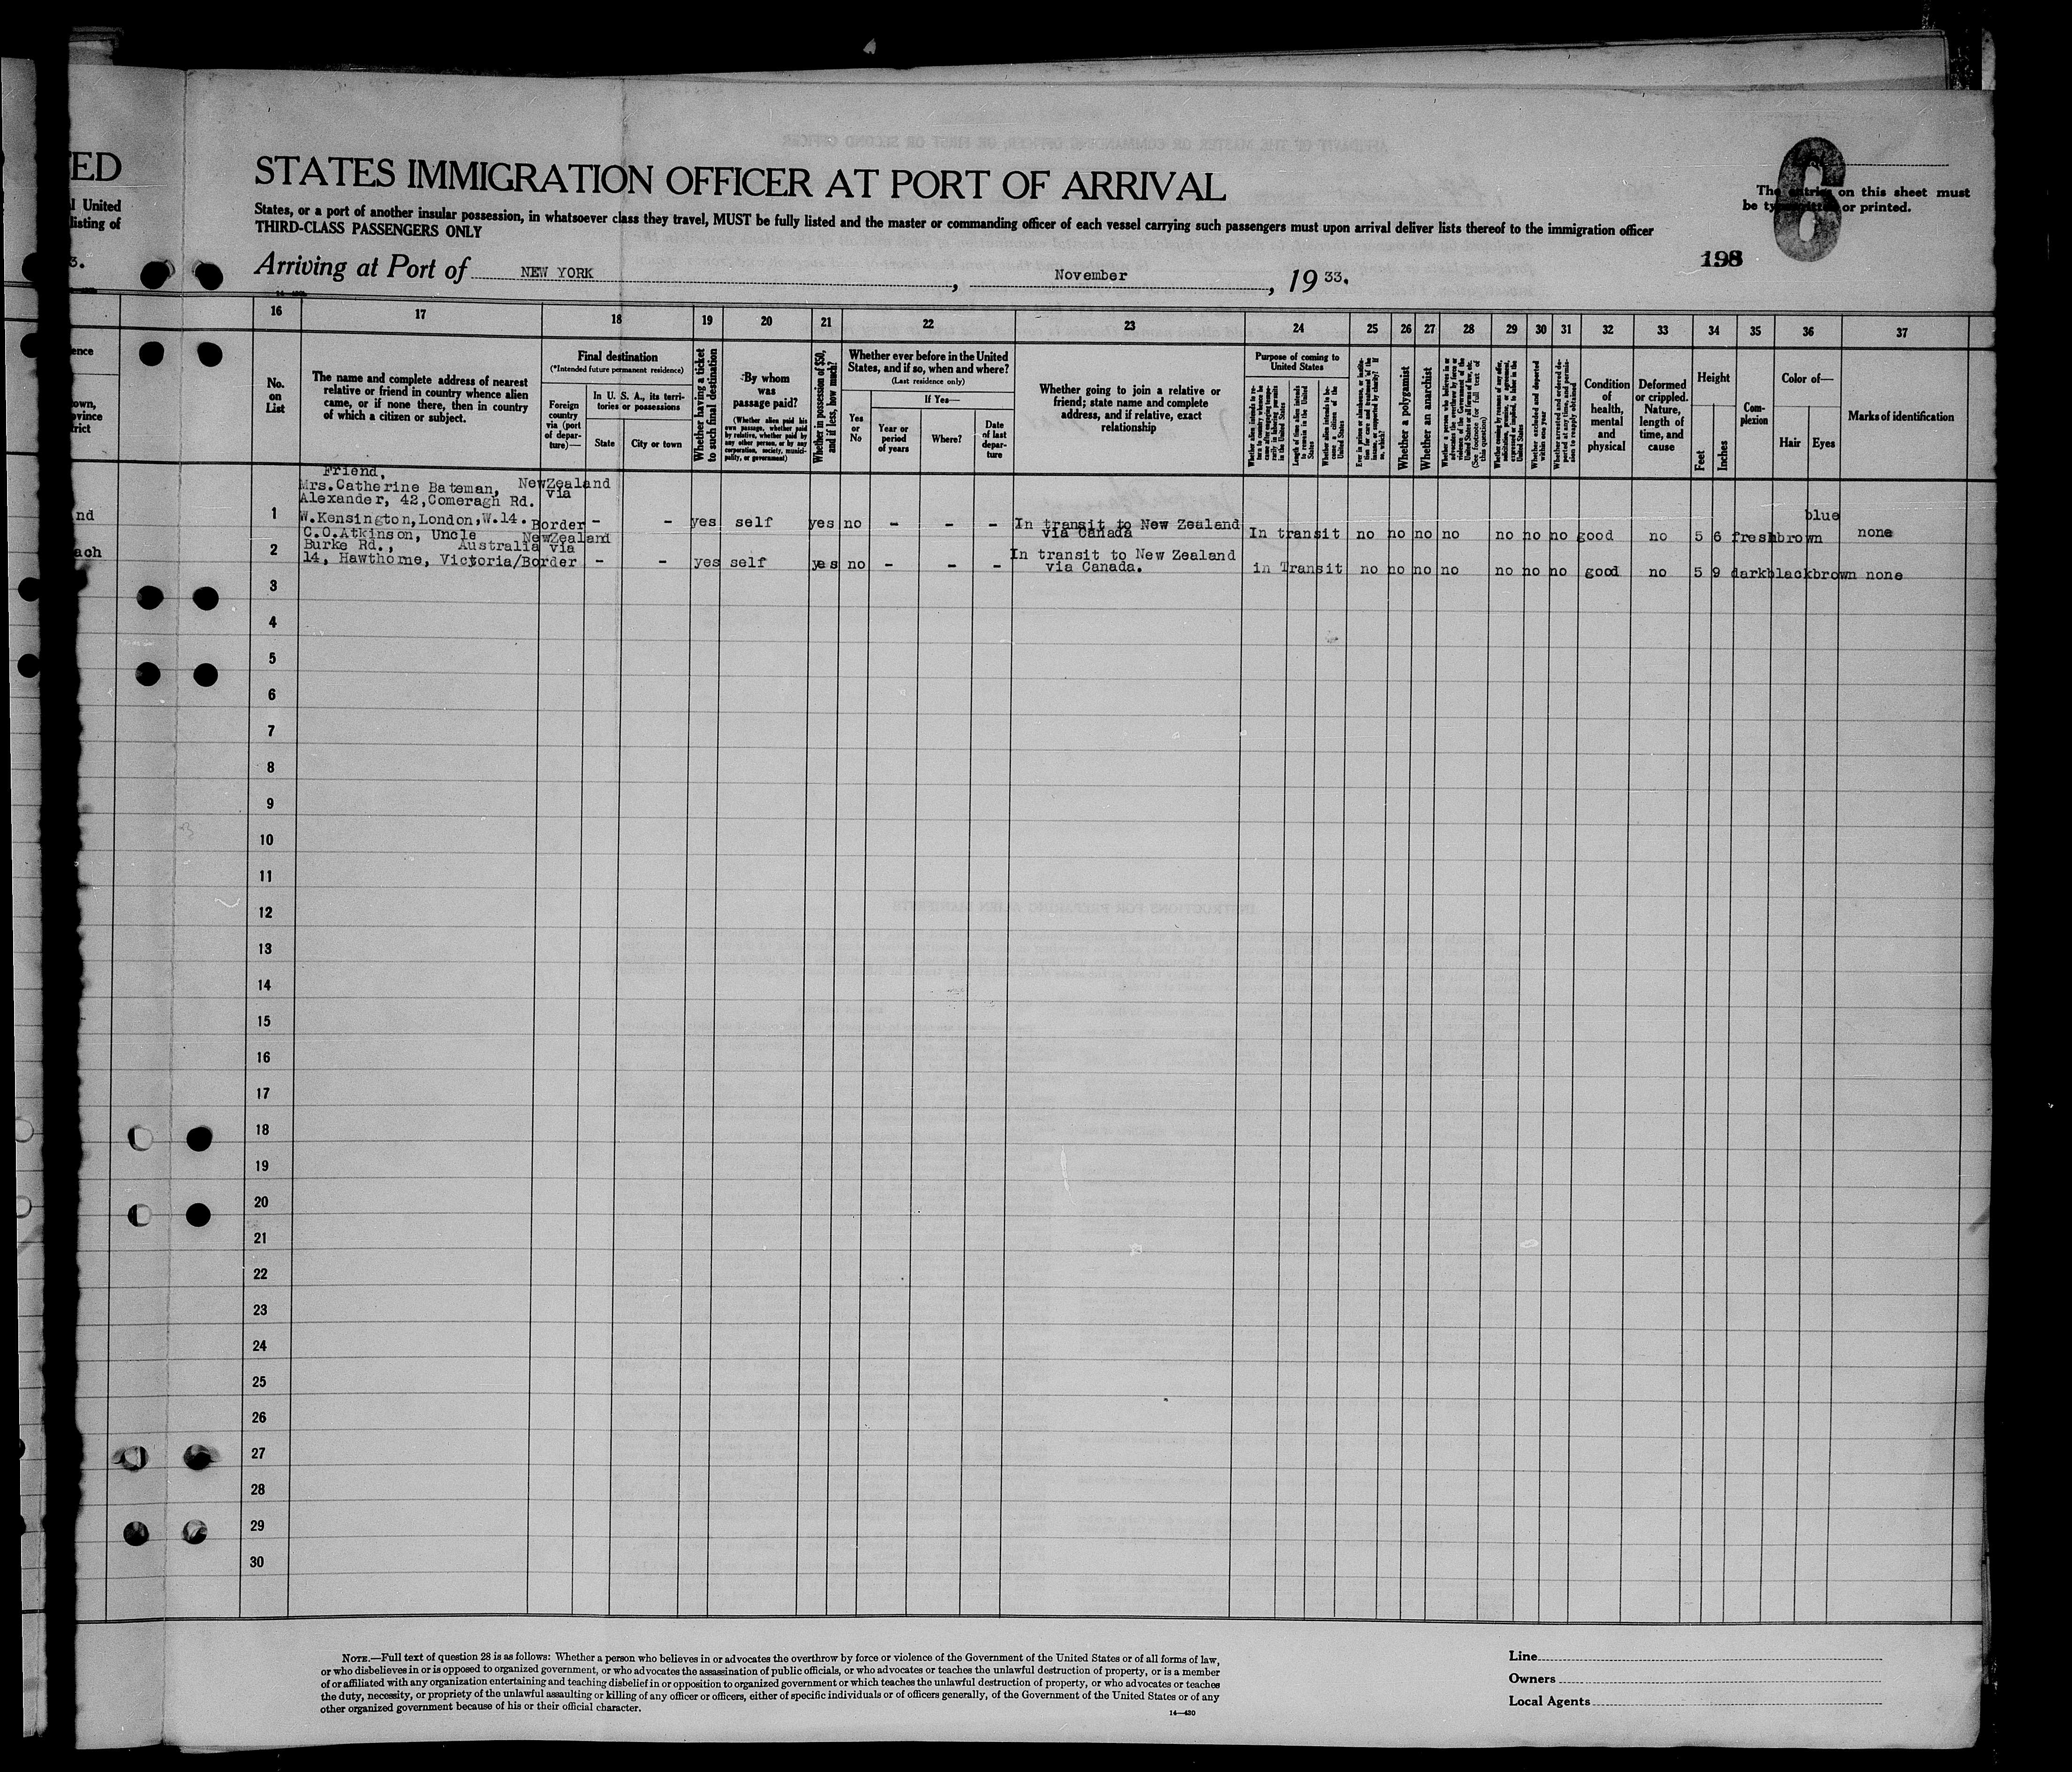 ED
l United
listing of
3.
ence
own,
ovince
trict
nd
ach
STATES IMMIGRATION OFFICER AT PORT OF ARRIVAL
6
The entries on this sheet must
be typewritten or printed.
States, or a port of another insular possession, in whatsoever class they travel, MUST be fully listed and the master or commanding officer of each vessel carrying such passengers must upon arrival deliver lists thereof to the immigration officer
THIRD-CLASS PASSENGERS ONLY
198
Arriving at Port of NEW YORK, November, 19 33.
16 17 18 19 20 21 22 23 24 25 26 27 28 29 30 31 32 33 34 35 36 37
No.
on
List
The name and complete address of nearest
relative or friend in country whence alien
came, or if none there, then in country
of which a citizen or subject.
Final destination
(*Intended future permanent residence)
Foreign
country
via (port
of depar-
ture)—
In U. S. A., its terri-
tories or possessions
State
City or town
Whether having a ticket
to such final destination
By whom
was
passage paid?
(Whether alien paid his
own passage, whether paid
by relative, whether paid by
any other person, or by any
corporation, society, munici-
pality, or government)
Whether in possession of $50,
and if less, how much?
Whether ever before in the United
States, and if so, when and where?
(Last residence only)
Yes
or
No
If Yes—
Year or
period
of years
Where?
Date
of last
depar-
ture
Whether going to join a relative or
friend; state name and complete
address, and if relative, exact
relationship
Purpose of coming to
United States
Whether alien intends to re-
turn to country whence he
came after engaging tempo-
rarily in laboring pursuits
in the United States
Length of time alien intends
to remain in the United
States
Whether alien intends to be-
come a citizen of the
United States
Whether a polygamist
Whether an anarchist
Whether a person who believes in or
advocates the overthrow by force or
violence of the Government of the
United States or all forms of law, etc.
(See footnote for full text of
this question)
Whether excluded and deported
within one year
Condition
of
health,
mental
and
physical
Deformed
or crippled.
Nature,
length of
time, and
cause
Height
Feet
Inches
Com-
plexion
Color of—
Hair
Eyes
Marks of identification
Friend,
Mrs.Catherine Bateman, NewZealand
Alexander, 42,Comeragh Rd. via
1 W.Kensington,London,W.14. Border - - yes self yes no - - - In transit to New Zealand
via Canada In transit no no no no no no no good no 5 6 fresh brown blue none
C.O.Atkinson, Uncle NewZealand
2 Burke Rd., Australia via
14, Hawthorne, Victoria/Border - - yes self yes no - - - In transit to New Zealand
via Canada. in Transit no no no no no no no good no 5 9 dark black brown none
3
4
5
6
7
8
9
10
11
12
13
14
15
16
17
18
19
20
21
22
23
24
25
26
27
28
29
30
NOTE.—Full text of question 28 is as follows: Whether a person who believes in or advocates the overthrow by force or violence of the Government of the United States or of all forms of law,
or who disbelieves in or is opposed to organized government, or who advocates the assassination of public officials, or who advocates or teaches the unlawful destruction of property, or is a member
of or affiliated with any organization entertaining and teaching disbelief in or opposition to organized government or which teaches the unlawful destruction of property, or who advocates or teaches
the duty, necessity, or propriety of the unlawful assaulting or killing of any officer or officers, either of specific individuals or of officers generally, of the Government of the United States or of any
other organized government because of his or their official character.
14—430
Line
Owners
Local Agents